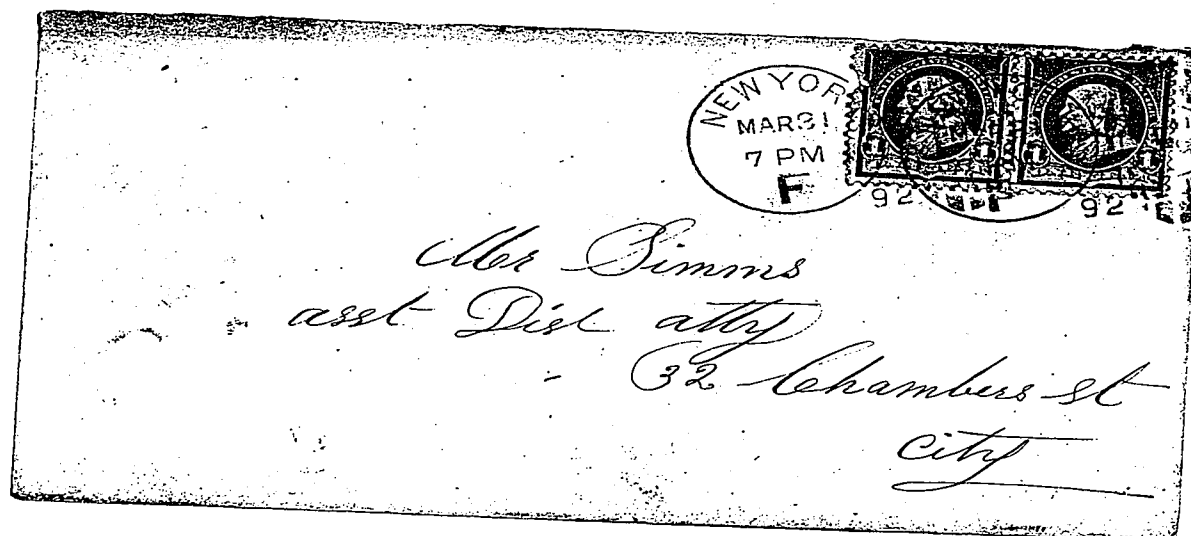 NEW YOR
MAR 31
7 PM
F
92
92
1 1
1 1
Mr Simms
asst Dist atty
32 Chambers st
City